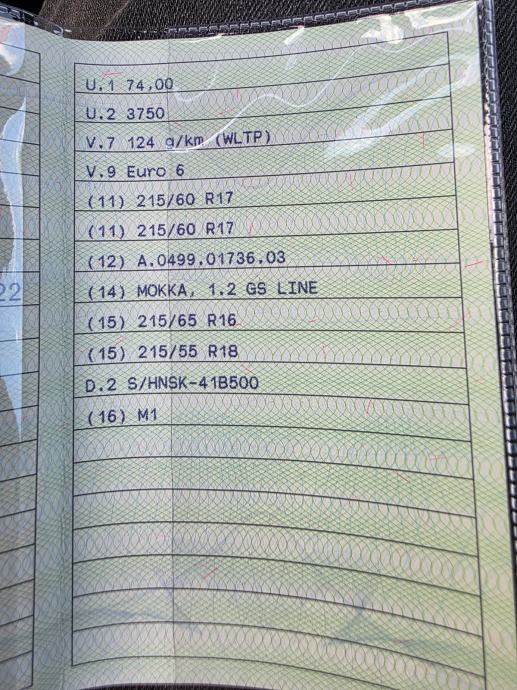 U.1 74,00
U.2 3750
V.7 124 g/km (WLTP)
V.9 Euro 6
(11) 215/60 R17
(11) 215/60 R17
(12) A.0499.01736.03
22
(14) MOKKA, 1.2 GS LINE
(15) 215/65 R16
(15) 215/55 R18
D.2 S/HNSK-41B500
(16) M1